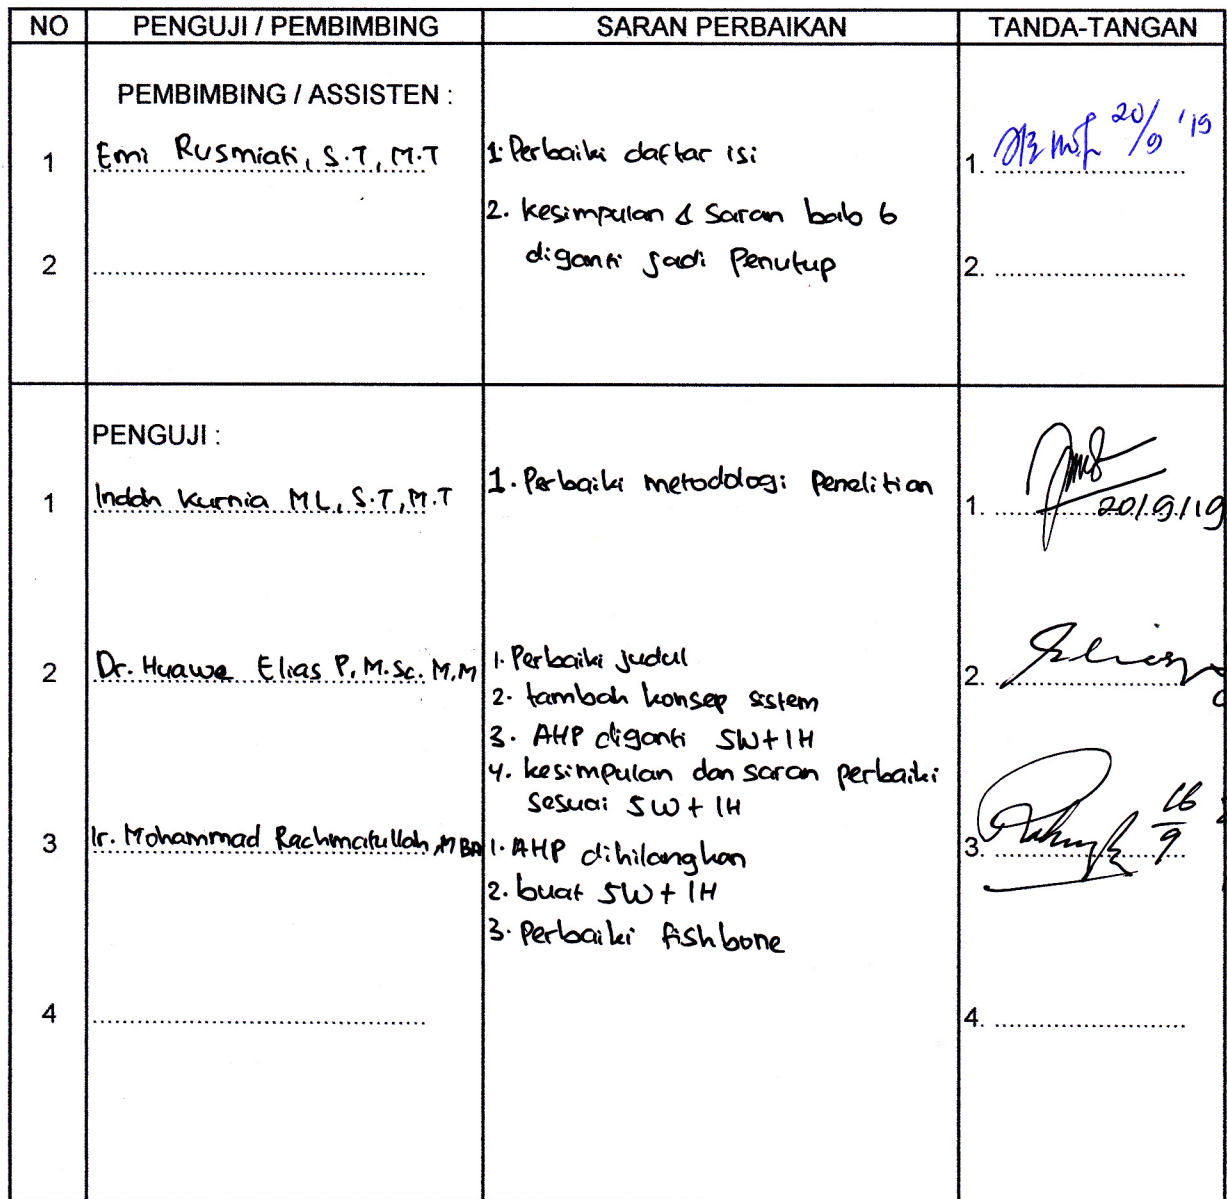 NO PENGUJI / PEMBIMBING SARAN PERBAIKAN TANDA-TANGAN
PEMBIMBING / ASSISTEN :
1 Emi Rusmiati, S.T, M.T 1. Perbaiki daftar isi 1. 20/9 '19
2. kesimpulan & saran bab 6
2 diganti jadi Penutup 2.
PENGUJI :
1 Indah Kurnia ML, S.T, M.T 1. Perbaiki metodologi Penelitian 1. 20/9/19
2 Dr. Huawe Elias P, M.Sc. M.M 1. Perbaiki judul 2.
2. tambah konsep sistem
3. AHP diganti 5W+1H
4. kesimpulan dan saran perbaiki
sesuai 5W + 1H
3 Ir. Mohammad Rachmatullah, MBA 1. AHP dihilangkan 3. 16/9
2. buat 5W + 1H
3. Perbaiki fishbone
4 4.